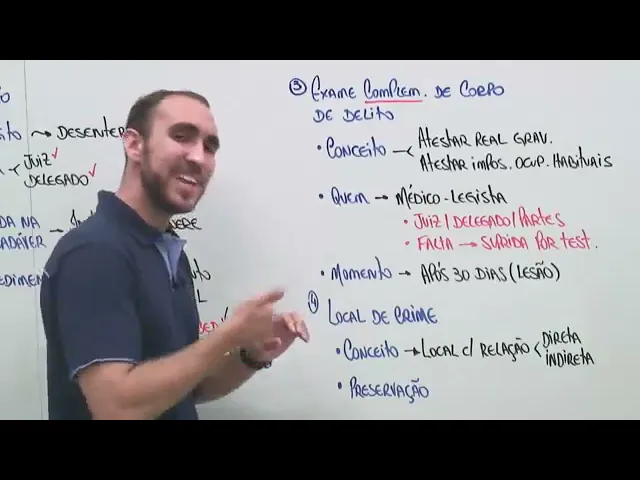 ③ EXAME COMPLEM. DE CORPO
DE DELITO
• CONCEITO < ATESTAR REAL GRAV.
ATESTAR IMPOS. OCUP. HABITUAIS
• QUEM → MÉDICO-LEGISTA
• JUIZ / DELEGADO / PARTES
• FALTA → SUPRIDA POR TEST.
• MOMENTO → APÓS 30 DIAS (LESÃO)
④ LOCAL DE CRIME
• CONCEITO → LOCAL C/ RELAÇÃO < DIRETA
INDIRETA
• PRESERVAÇÃO
→ DESENTER
JUIZ ✓
DELEGADO ✓
DA NA
CADÁVER